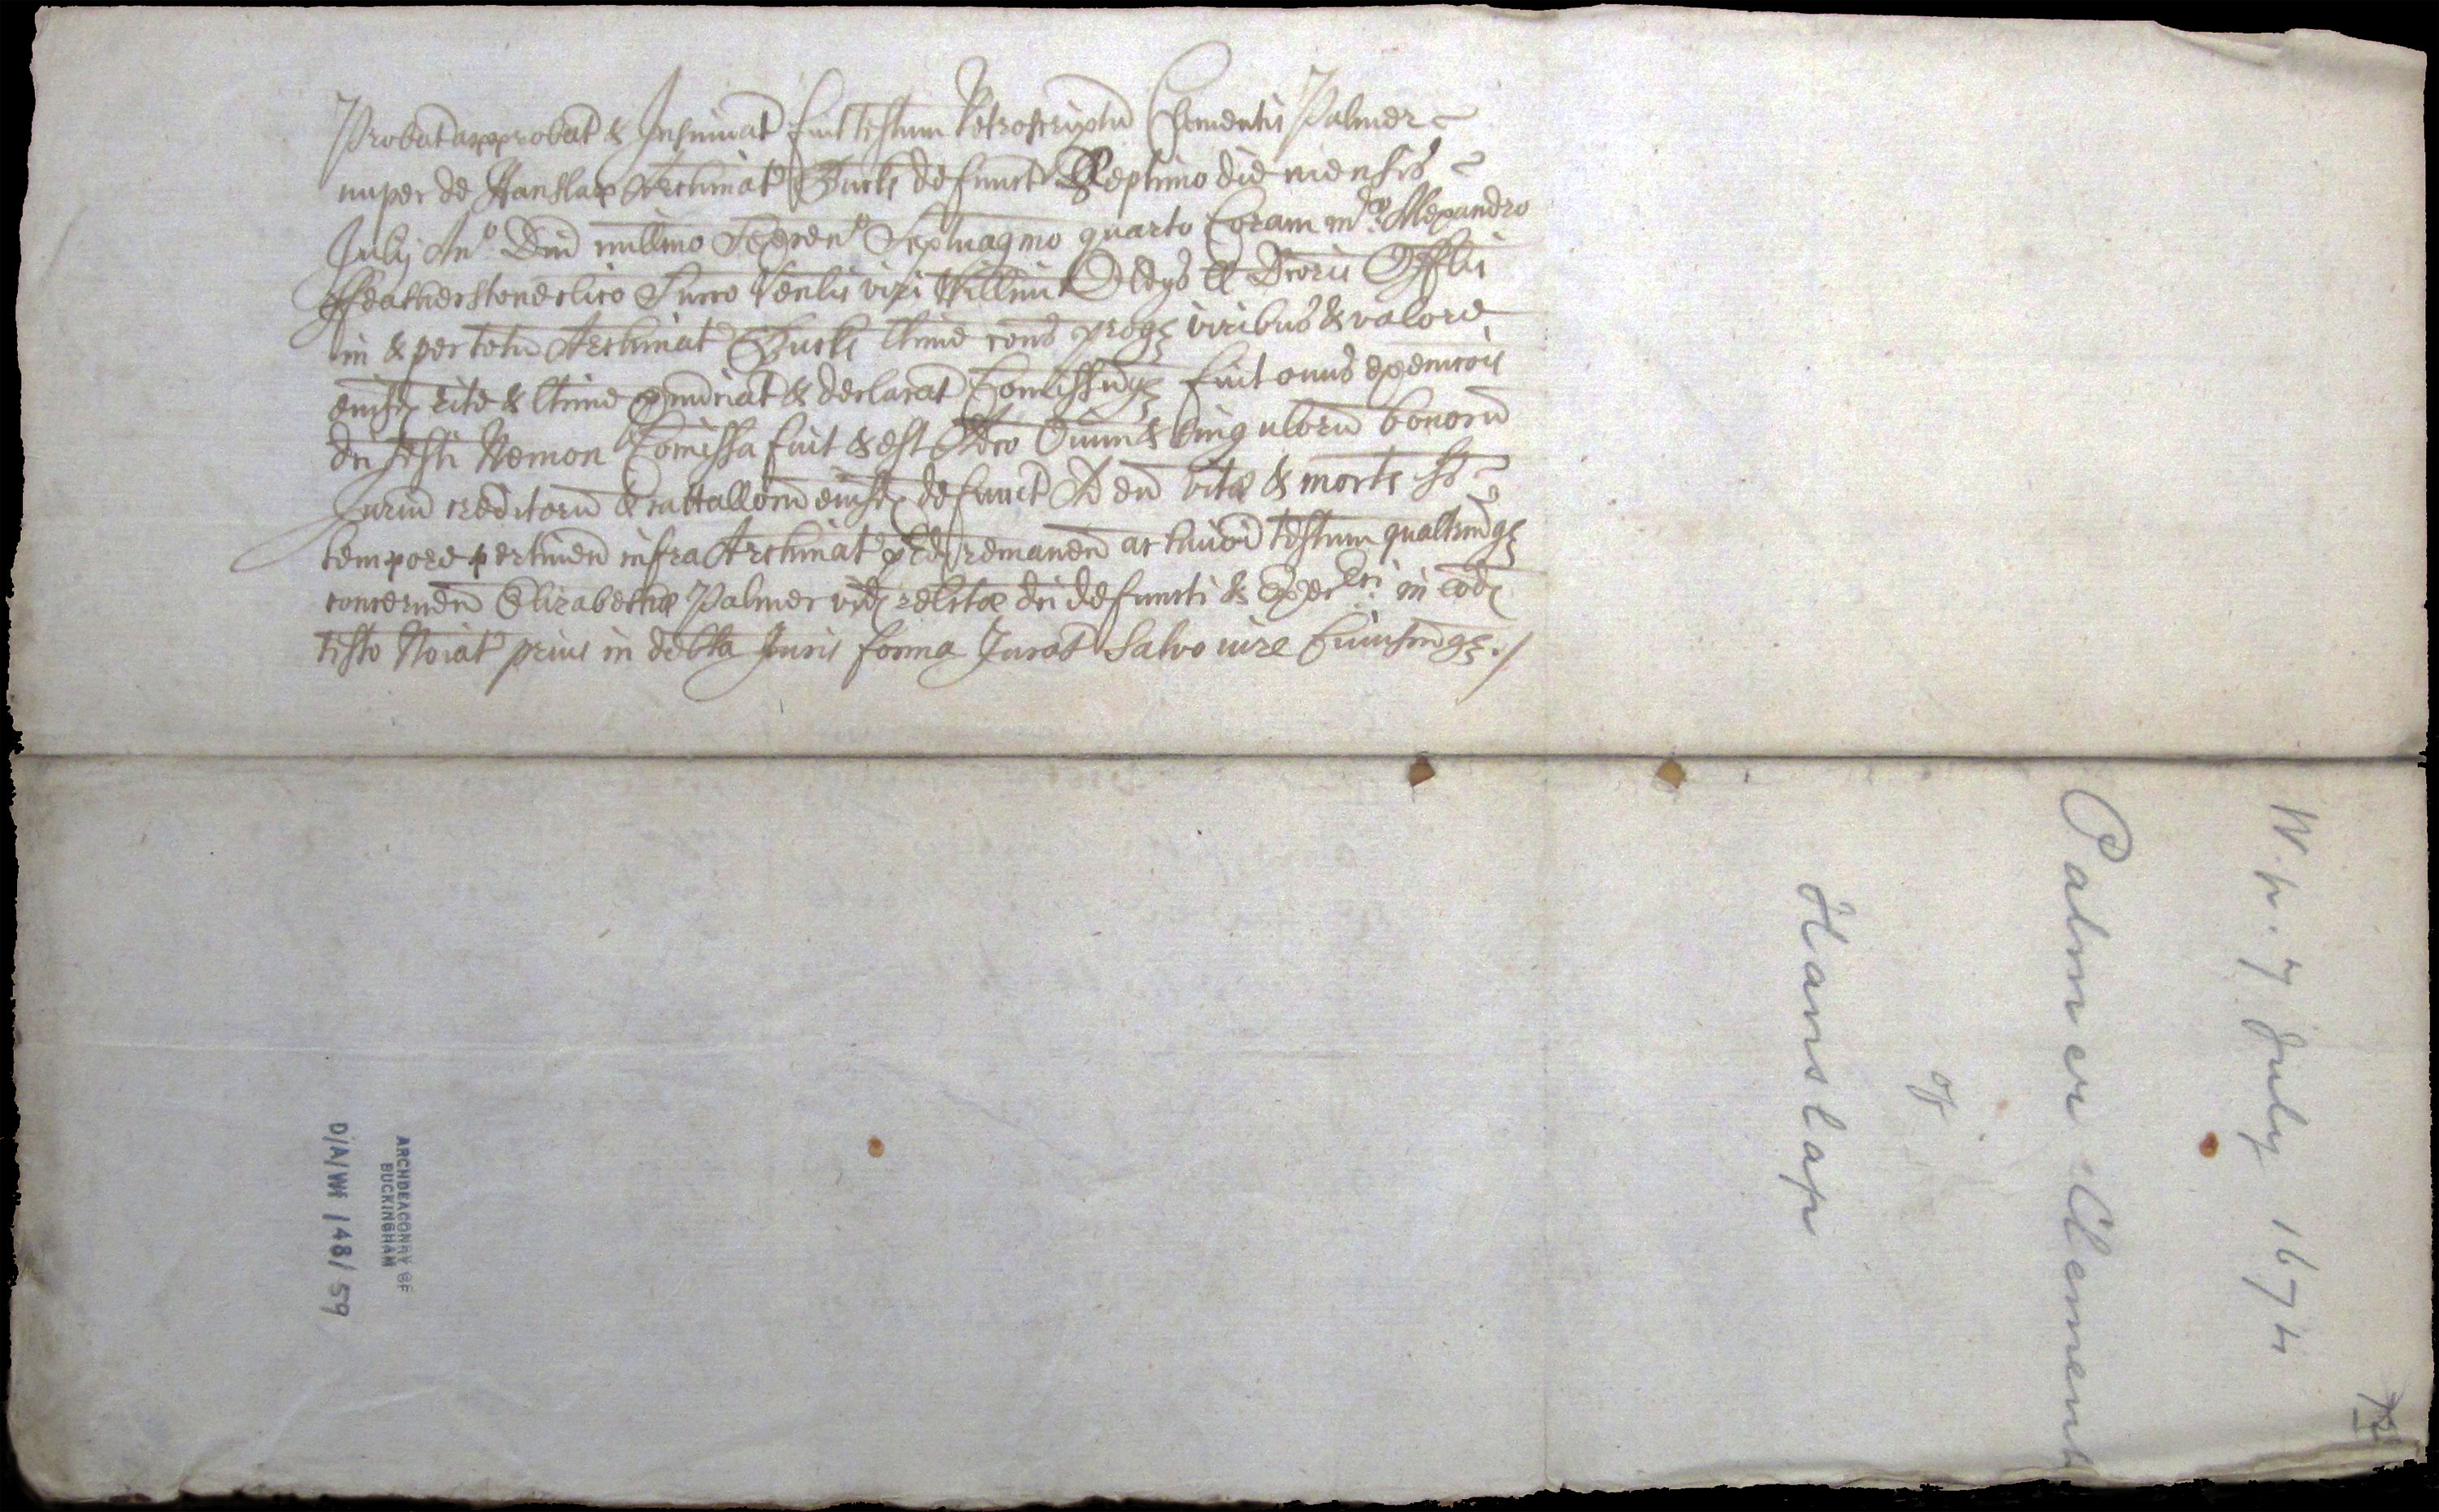 Probat approbat & Insinuat fuit testum Retroscriptu Clementis Palmer
nuper de Hanslap Archinat Bucks defunct Septimo die mensis
Julij Ano Dni millmo Sexcen Septuagmo quarto Coram mro Alexandro
ffeatherstone clico Surro venlis viri Willmi Oldys ll Dcoris Offlis
in & per totu Archinat Bucks ltime cons proq viribus & valore
eiusd rite & ltime pnunciat & declarat Comissumq fuit onus execucois
dci testi Necnon Comissa fuit & est Adco Oium & Singuloru bonoru
Juriu creditoru & cattalloru eiusd defunct Ad eu vitae & mortis st
tempore pertinen infra Archinat pred remanen ac huiusmoi testum qualitercuq
concernen Elizabethae Palmer vid relictae dci defuncti & Exec in eod
testo Noiat prius in debita Juris forma Jurat Salvo iure Cuiuscuq
W. p. 7 July 1674
Palmer Clement
of
Hanslap
ARCHDEACONRY OF
BUCKINGHAM
D/A/Wf 148/59